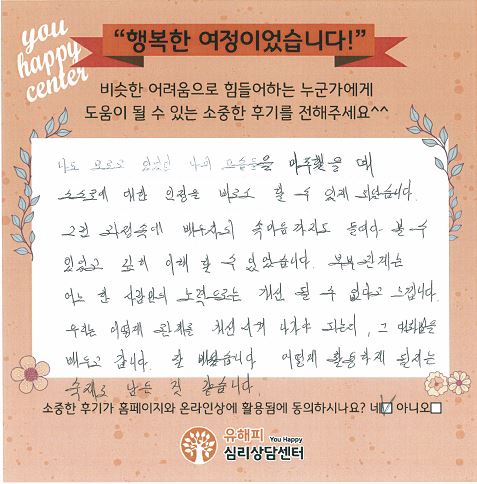 you
happy
center
“행복한 여정이었습니다!”
비슷한 어려움으로 힘들어하는 누군가에게
도움이 될 수 있는 소중한 후기를 전해주세요^^
나도 모르고 있었던 나의 모습들을 마주했을 때
스스로에 대한 인정을 비로소 할 수 있게 되었습니다.
그런 과정속에 배우자의 속마음까지도 들여다 볼 수
있었고 깊이 이해 할 수 있었습니다. 부부 관계는
어느 한 사람만의 노력으로는 개선 될 수 없다고 느낍니다.
우리는 어떻게 관계를 개선시켜 나가야 하는지, 그 방법을
배우고 갑니다. 잘 배웠습니다. 어떻게 활용하게 될지는
숙제로 남은 것 같습니다.
소중한 후기가 홈페이지와 온라인상에 활용됨에 동의하시나요? 네 아니오
유해피 You Happy
심리상담센터